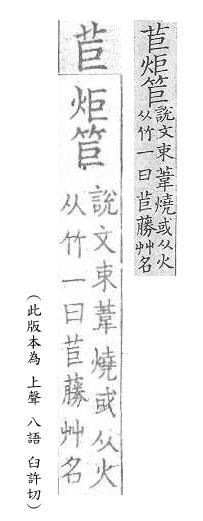 苣炬𥬙
說文束葦燒或从火
从竹一曰苣藤艸名
苣炬𥬙
說文束葦燒或从火
从竹一曰苣藤艸名
（此版本為 上聲 八語 臼許切）